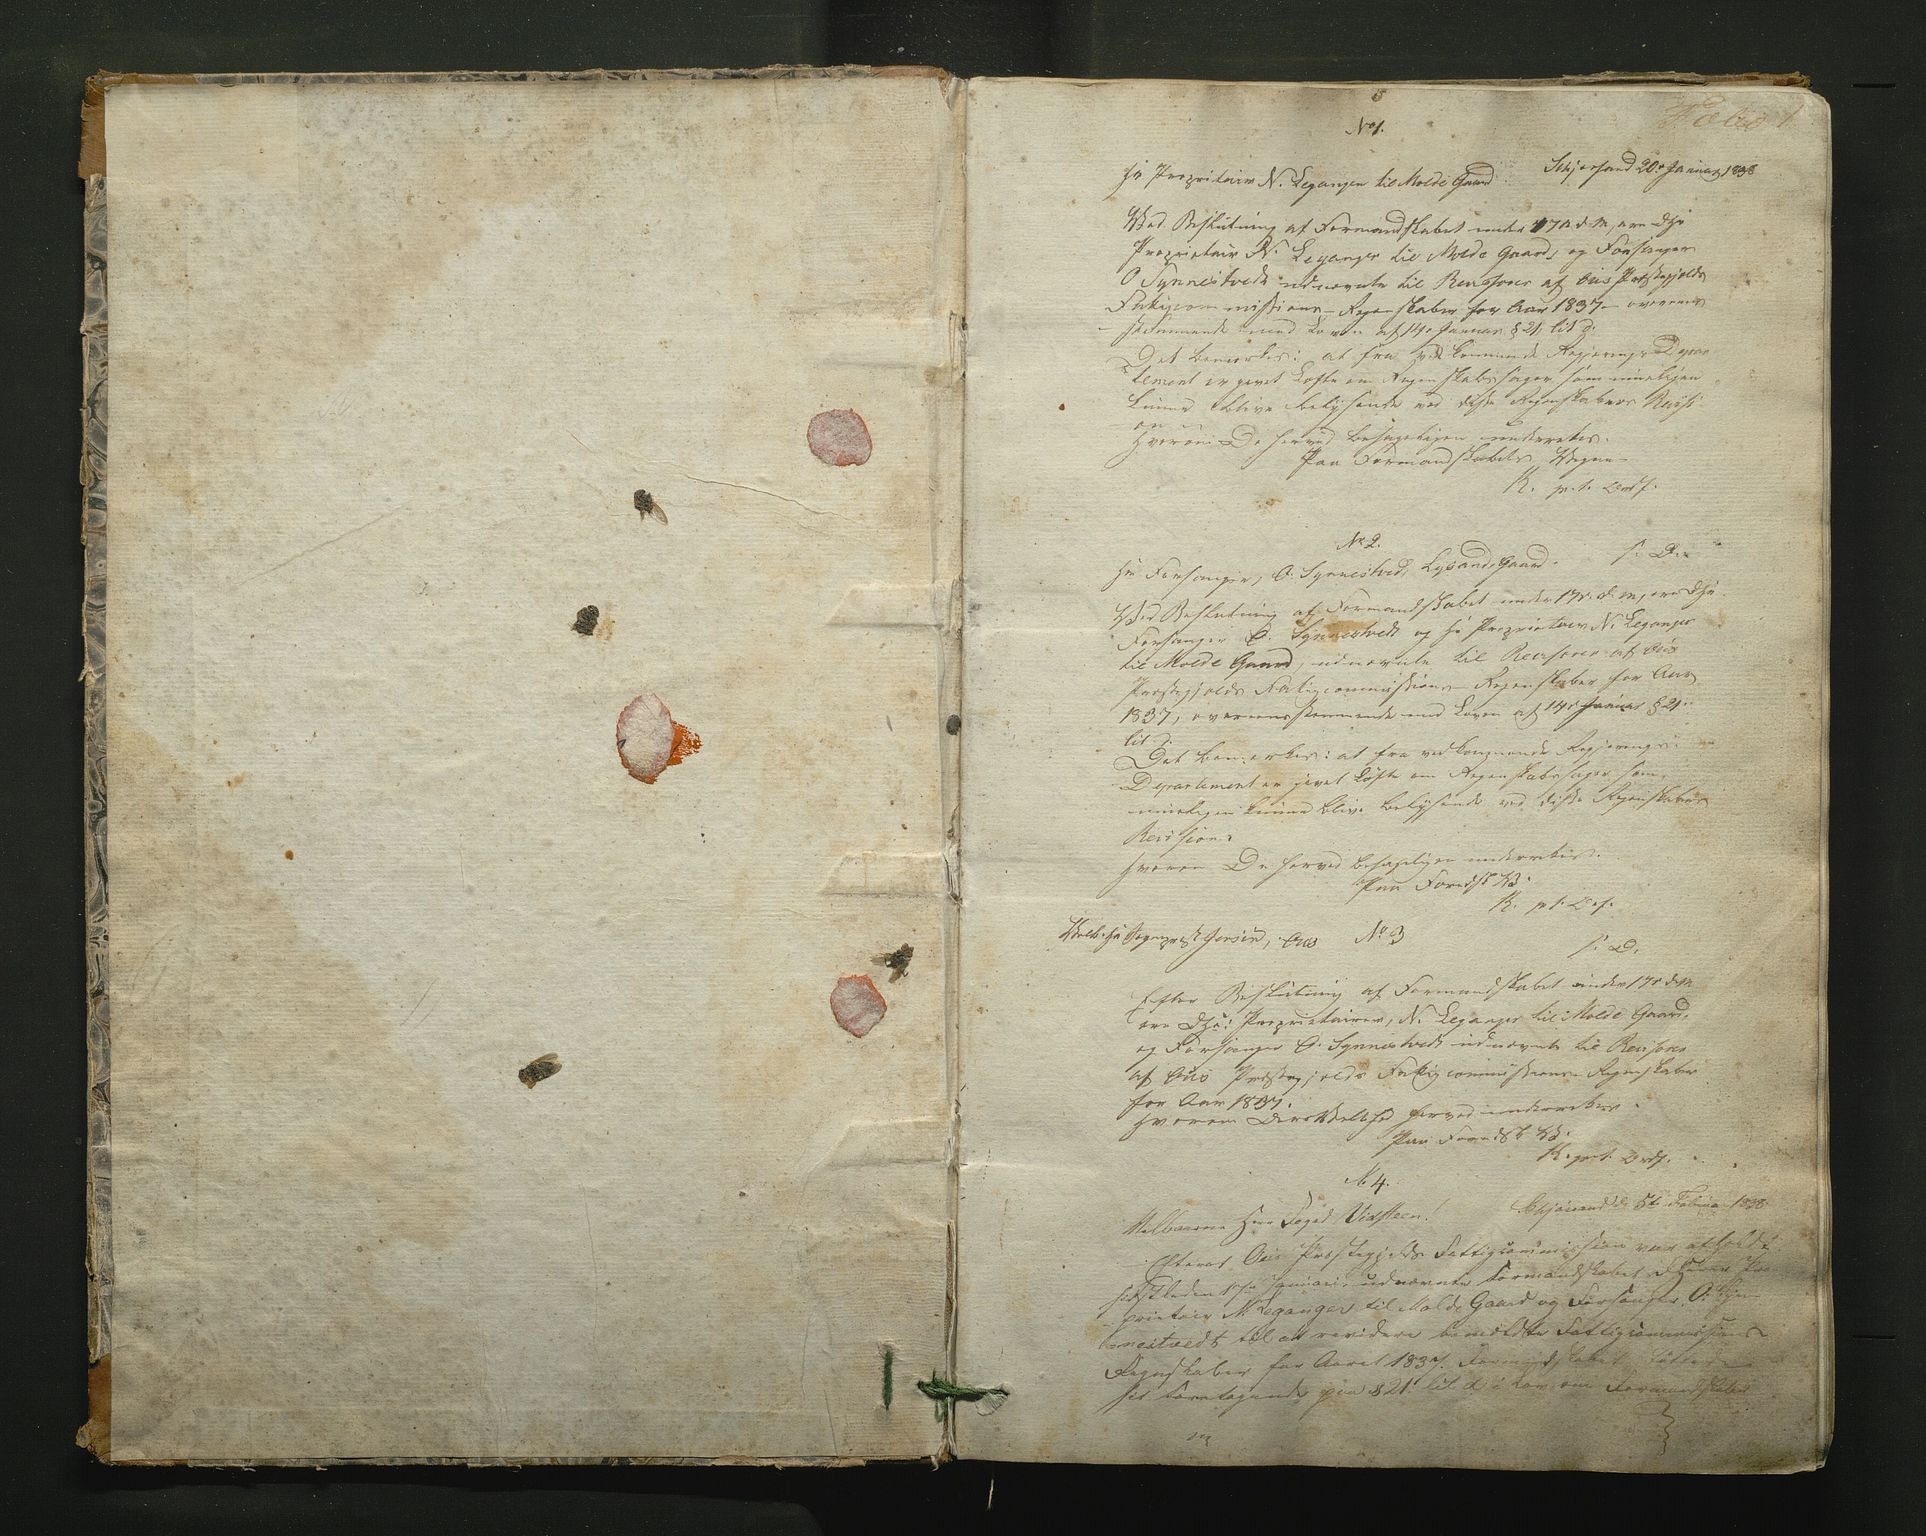 Folio 1
No 1.
Hr Proprietair N. Leganger til Molde Gaard. Schjørsand 20. Januar 1838
Ved Beslutning af Formandskabet under 17n d. M, ere Dhr
Proprietair N. Leganger til Molde Gaard, og Forsanger
O Synnestvedt udnævnte til Revisorer af Ous Præstegjelds
Fattigcommissions-Regenskaber for Aar 1837 overens
stemmende med Loven af 14. Januar § 21, lit d.
Det bemærkes: at fra vedkommende Regjerings-Depar
tement er givet Løfte om Regenskabssager som muligen
kunne blive belysende ved disse Regenskabers Revisi
on
Hvorom De herved behageligen underrettes.
Paa Formandskabets Vegne
K. p. t. Ordf.
No 2.
Hr Forsanger, O. Synnestvedt, Lysands Gaard. s. D.
Ved Beslutning af Formandskabet under 17n d. M, ere Dhr
Forsanger O. Synnestvedt og Hr Proprietair N. Leganger
til Molde Gaard, udnævnte til Revisorer af Ous
Præstegjelds Fattigcommissions-Regenskaber for Aar
1837, overensstemmende med Loven af 14. Januar § 21.
lit d.
Det bemærkes: at fra vedkommende Regjerings-
Departement er givet Løfte om Regenskabssager som
muligen kunne blive belysende ved disse Regenskabers
Revision.
Hvorom De herved behageligen underrettes.
Paa Formdsk V.
K. p. t. O. f.
Velb. Hr Sogneprest Gersin, Ous No 3 s. D.
Efter Beslutning af Formandskabet under 17n d. M
ere Dhr: Proprietairen, N. Leganger til Molde Gaard,
og Forsanger O. Synnestvedt udnævnte til Revisorer
af Ous Præstegjelds Fattigcommissions-Regenskaber
for Aar 1837.
Hvorom Deres Velbhd herved underrettes.
Paa Formdsk V.
K. p. t. Ordf.
No 4.
Velbaarne Herr Foged Vidsteen! Schjørsand d. 5te Februar 1838
Efterat Ous Præstegjelds Fattigcommission var afholdt
sidstleden 17de Januar, udnævnte Formandskabet d'Herrer Pro
prietair N. Leganger til Molde Gaard og Forsanger O. Syn
nestvedt til at revidere bemeldte Fattigcommissions
Regnskaber for Aaret 1837. Formandskabet støttede
sit Foretagende paa § 21 lit d i Lov om Formandskaber